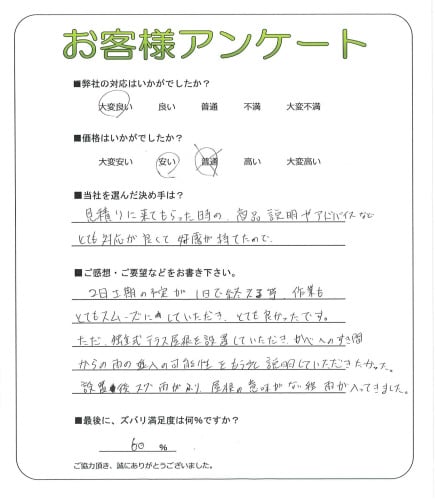 お客様アンケート
■弊社の対応はいかがでしたか？
大変良い 良い 普通 不満 大変不満
■価格はいかがでしたか？
大変安い 安い 普通 高い 大変高い
■当社を選んだ決め手は？
見積りに来てもらった時の、商品説明やアドバイスなど
とても対応が良くて好感が持てたので。
■ご感想・ご要望などをお書き下さい。
2日工期の予定が1日で終える等、作業も
とてもスムーズにしていただき、とても良かったです。
ただ、テラス屋根を設置していただき、かべへのすき間
からの雨の進入の可能性をもう少し説明していただきたかった。
設置後スグ雨がふり、屋根の意味がない程雨が入ってきました。
■最後に、ズバリ満足度は何％ですか？
60 ％
ご協力頂き、誠にありがとうございました。